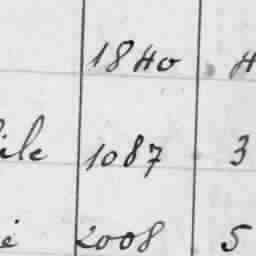 1840 4
ile 1087 3
é 2008 5